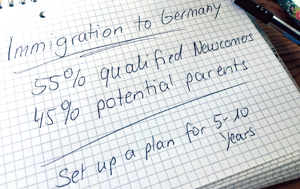 Immigration to Germany
55% qualified Newcomers
45% potential parents
Set up a plan for 5-10
years